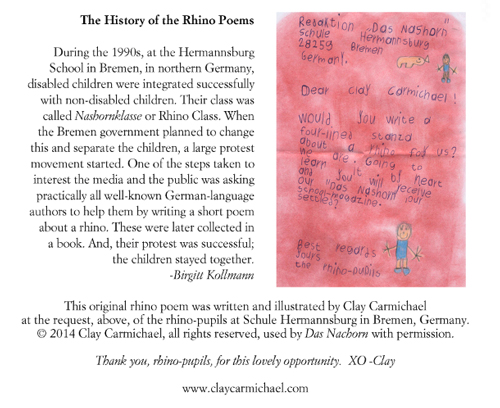 The History of the Rhino Poems
During the 1990s, at the Hermannsburg
School in Bremen, in northern Germany,
disabled children were integrated successfully
with non-disabled children. Their class was
called Nashornklasse or Rhino Class. When
the Bremen government planned to change
this and separate the children, a large protest
movement started. One of the steps taken to
interest the media and the public was asking
practically all well-known German-language
authors to help them by writing a short poem
about a rhino. These were later collected in
a book. And, their protest was successful;
the children stayed together.
-Birgitt Kollmann
Redaktion "Das Nashorn"
Schule Hermannsburg
28259 Bremen
German!.
Dear Clay Carmichael!
Would you write a
four-lined stanza
about a rhino for us?
we are going to
learn it by heart
and you'll will receive
our "das Nashorn"
school-magazine.
Best regards
yours
the rhino-pupils
This original rhino poem was written and illustrated by Clay Carmichael
at the request, above, of the rhino-pupils at Schule Hermannsburg in Bremen, Germany.
© 2014 Clay Carmichael, all rights reserved, used by Das Nachorn with permission.
Thank you, rhino-pupils, for this lovely opportunity. XO -Clay
www.claycarmichael.com